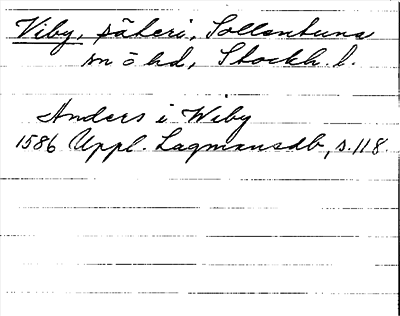 Viby, säteri, Sollentuna
sn ö hd, Stockh. l.
Anders i Wiby
1586 Uppl. Lagmansdb, s. 118.